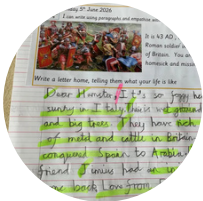 day 5th June 2026
I can write using paragraphs and empathise wi
It is 43 AD
Roman soldier
of Britain. You ar
homesick and missi
Write a letter home, telling them what your life is like
Dear Hamster, It's so foggy he
sunny in Italy, ground
and big trees. They have rich
of metal and cattle in Britain
conquered Spain to Arabia
friend had an
me back Love from